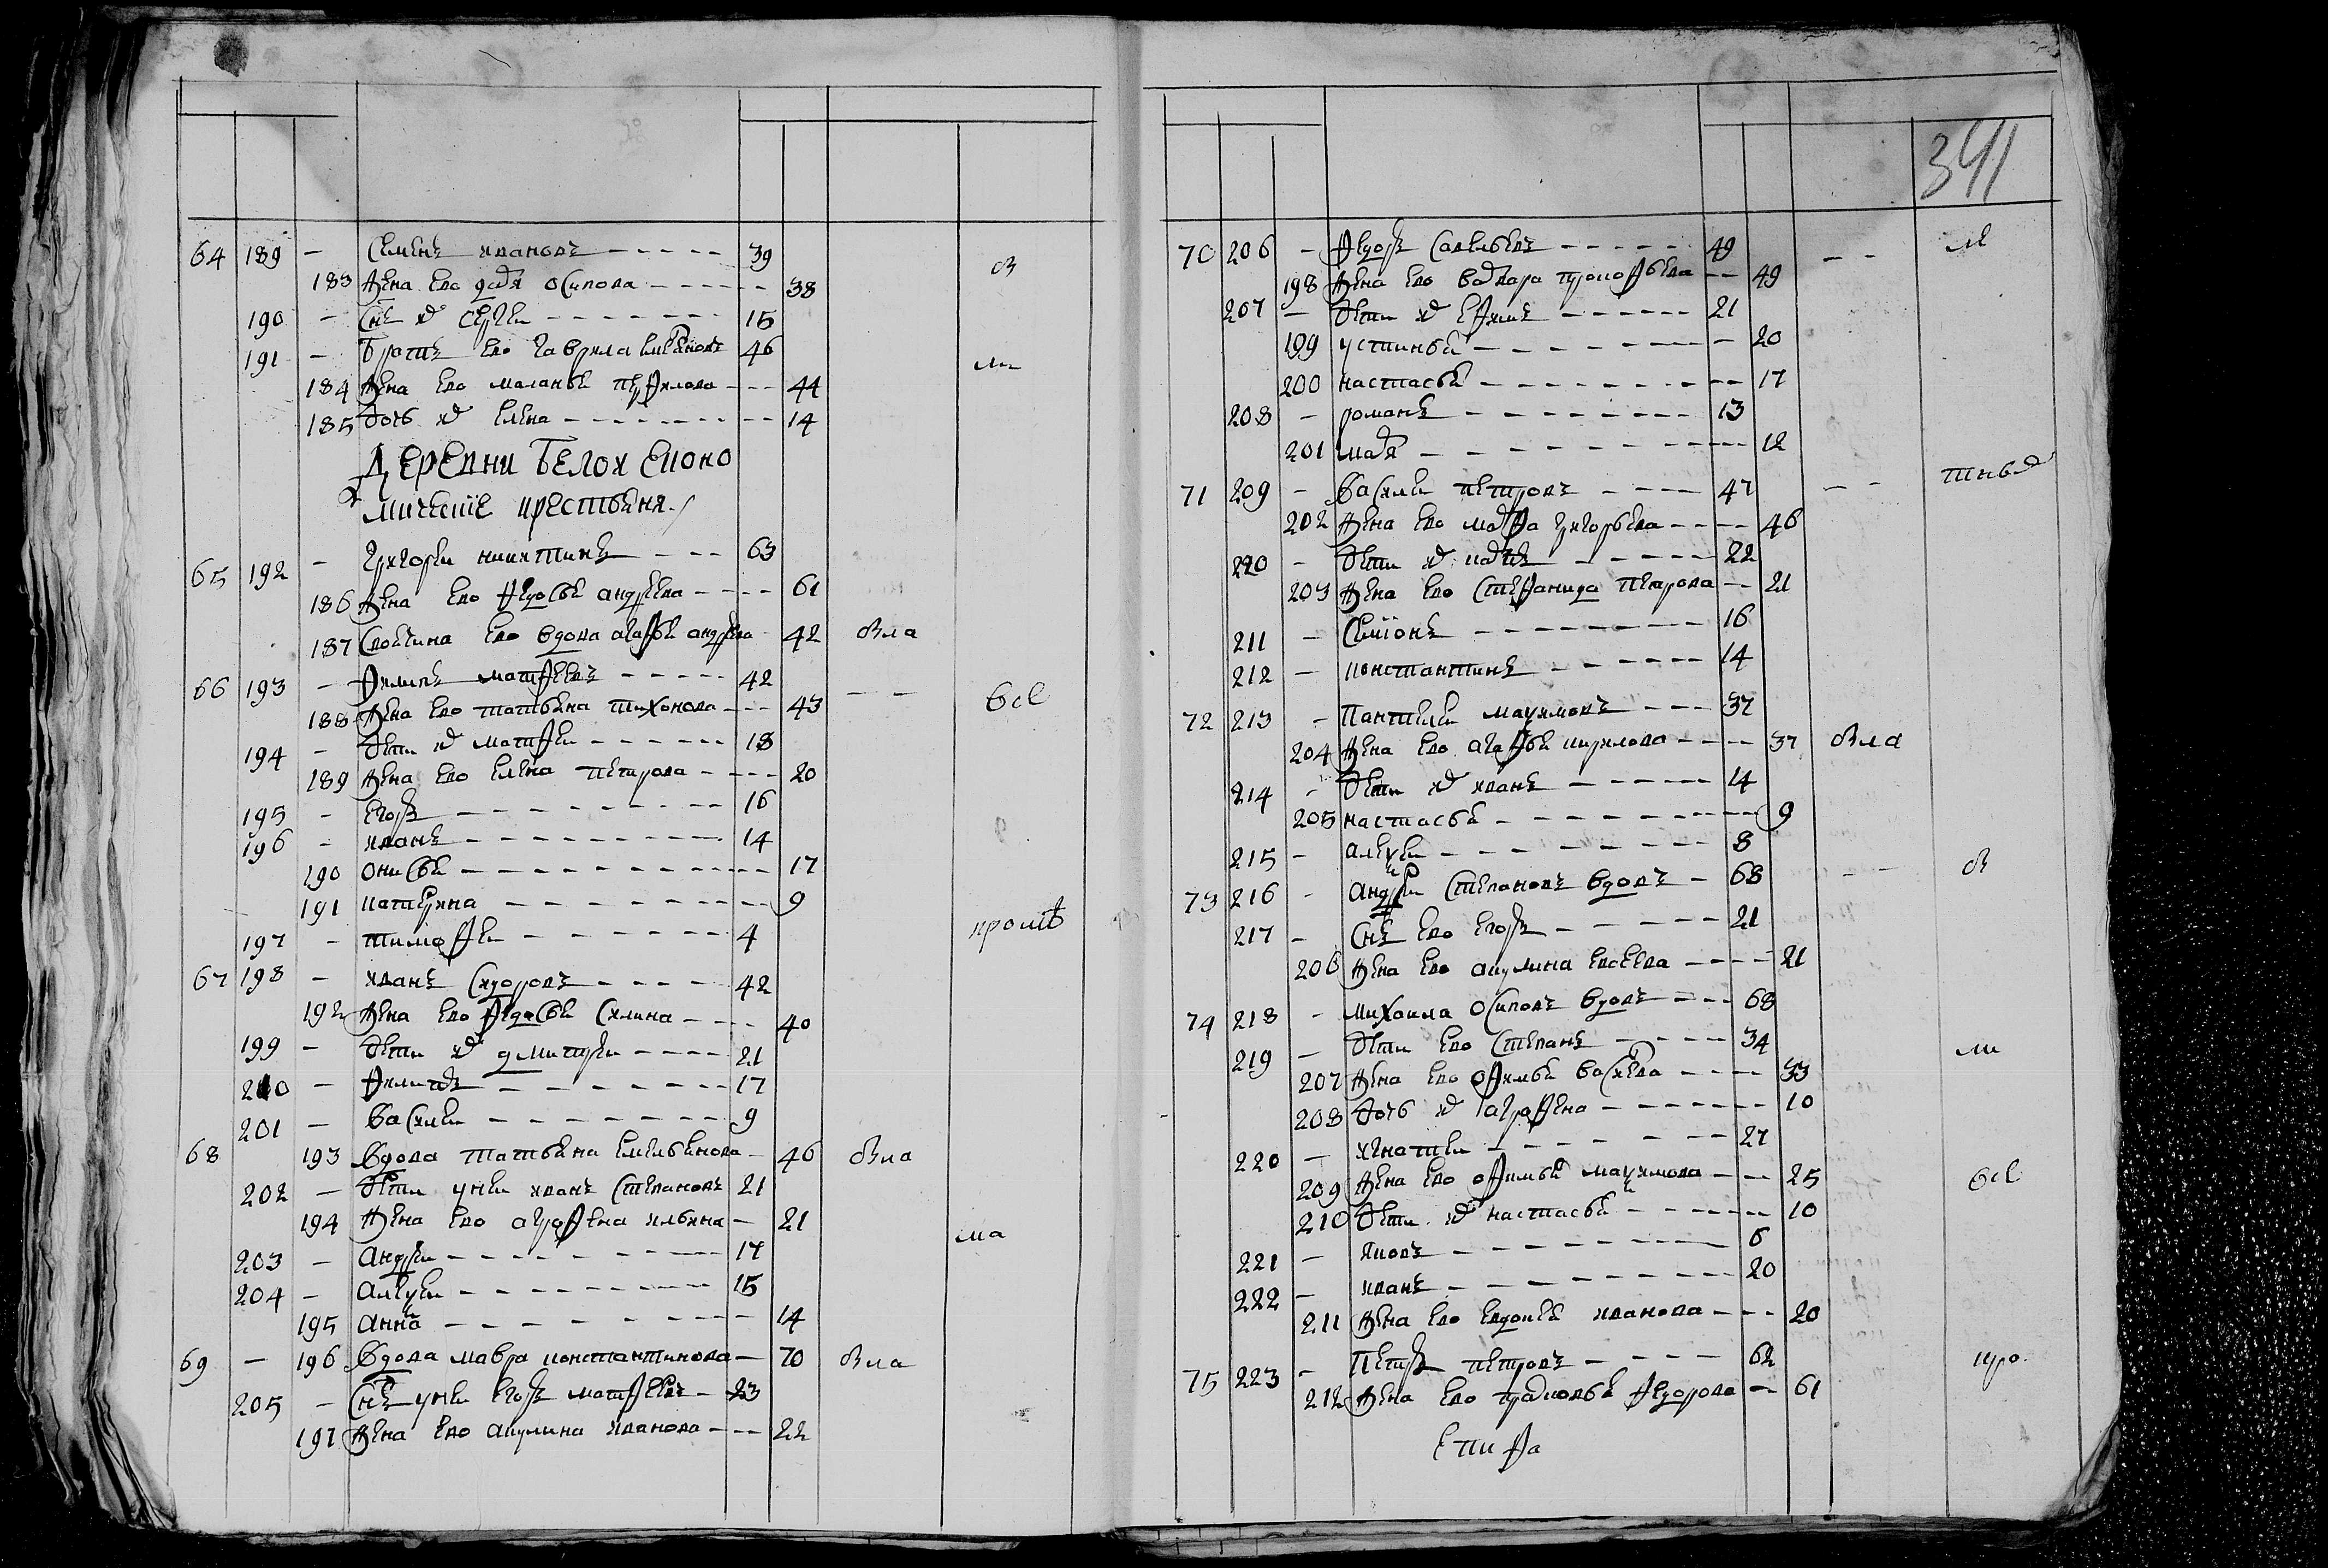 64 189 - Семенъ ивановъ - - - - - 39
183 Жена ево дарья осипова - - - - - 38
190 - Снъ их сергеи - - - - - 15
191 - Братъ ево гаврила 46
184 Жена ево маланья - - - 44
185 Дочь их елена - - - - - 14
Деревни Белои
мические крестьяня
65 192 - Григореи никитинъ - - - 63
186 Жена ево федосья андреева - - - - 61
187 Своячина ево вдова агафья андреева 42 овла
66 193 - Филипъ матфеевъ - - - - - 42
188 Жена ево татьяна тихонова - - - 43 - - все
194 - Дети их матфеи - - - - - 18
189 Жена ево елена петрова - - - - 20
195 - егоръ - - - - - 16
196 - иванъ - - - - - 14
190 онисья - - - - - 17
191 катерина - - - - - 9
кромѣ
197 - тимофеи - - - - - 4
67 198 - иванъ сидоровъ - - - - 42
192 Жена ево федосья силина - - - 40
199 - Дети их дмитреи - - - - 21
200 - Филипъ - - - - - 17
201 - василеи - - - - - 9
68 193 Вдова татьяна емельянова - 46 овла
202 - Дети у неи иванъ степановъ 21
194 Жена ево аграфена ильина - 21
ма
203 - андреи - - - - - 17
204 - алексеи - - - - - 15
195 анна - - - - - 14
69 - 196 Вдова мавра константинова - 70 овла
205 - Снъ у неи егоръ матфеевъ - 23
197 Жена ево акулина иванова - - - 22
341
70 206 - Федоръ савельевъ - - - - - 49 - -
198 Жена ево варвара прокофьева - - 49
207 - Дети их ефимъ - - - - - 21
199 устинья - - - - - 20
200 настасья - - - - - 17
208 - романъ - - - - - 13
201 марья - - - - - 12
71 209 - Василеи петровъ - - - - 47 - -
202 Жена ево марфа григорьева - - - - 46
210 - Дети их карпъ - - - - - 22
203 Жена ево стефанида петрова - - 21
211 - Симионъ - - - - - 16
212 - константинъ - - - - - 14
72 213 - Пантелеи максимовъ - - - 37
204 Жена ево агафья кирилова - - - - 37 овла
214 - Дети их иванъ - - - - - 14
205 настасья - - - - - 9
215 - алексеи - - - - - 8
73 216 - андреи степановъ вдовъ - 68 - -
217 - Снъ ево егоръ - - - - - 21
206 Жена ево акулина евсеева - - - - 21
74 218 - михаила осиповъ вдовъ - - - 68
219 - Дети ево степанъ - - - - 34
ми
207 Жена ево офимья васильева - - - - 33
208 Дочь их аграфена - - - - - 10
220 - игнатеи - - - - - 27
209 Жена ево офимья максимова - - 25
все
210 Дети их настасья - - - - - 10
221 - яковъ - - - - - 6
222 - иванъ - - - - - 20
211 Жена ево евдокия иванова - - - 20
75 223 - Петръ петровъ - - - - 62 кро
212 Жена ево прасковья федорова - 61
епифа